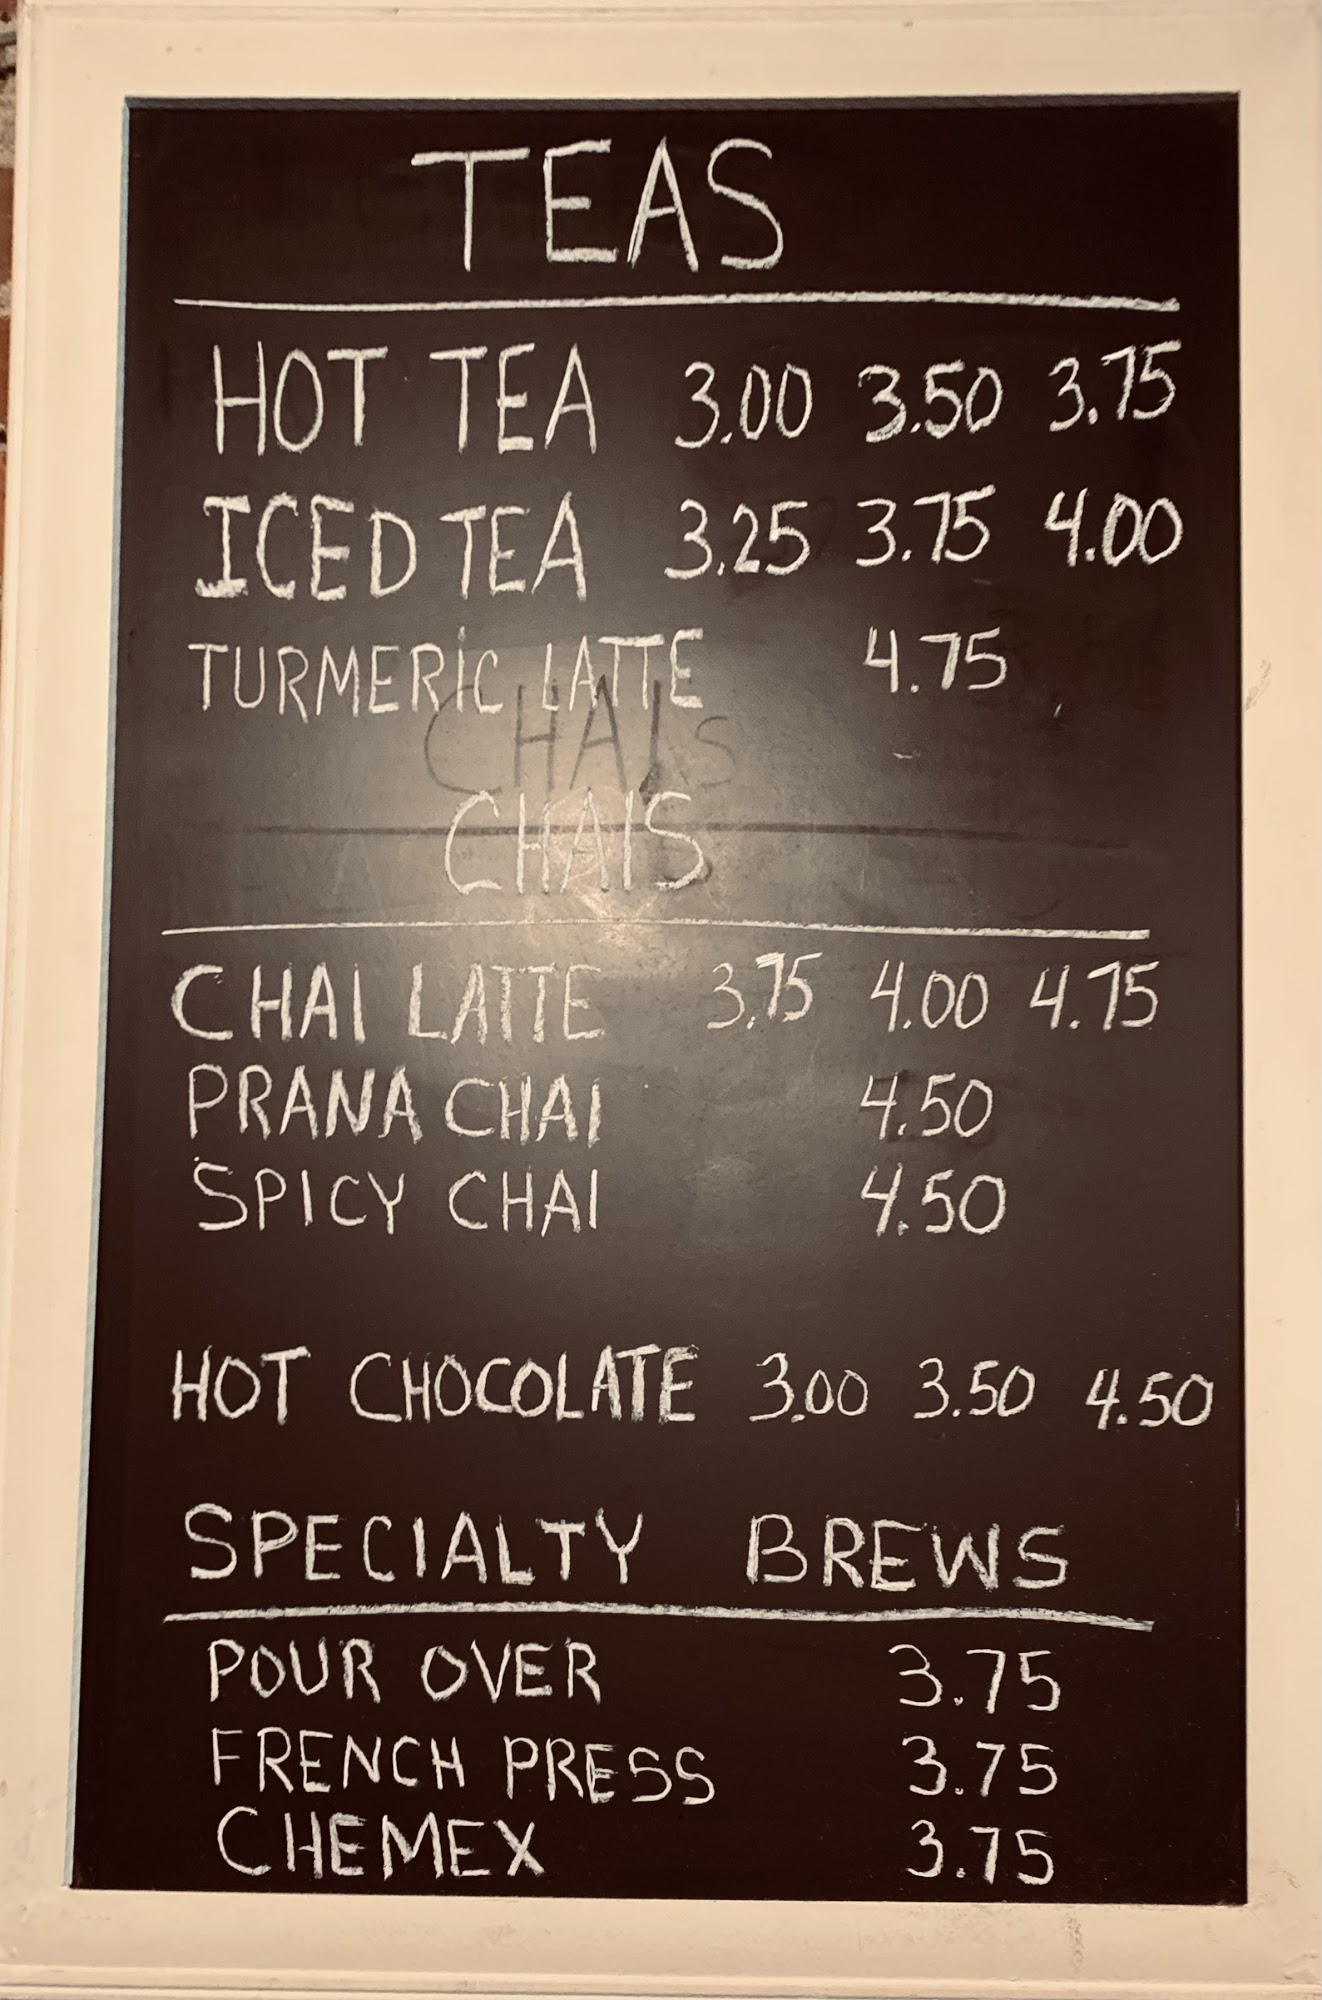 TEAS
HOT TEA 3.00 3.50 3.75
ICED TEA 3.25 3.75 4.00
TURMERIC LATTE 4.75
CHAIS
CHAIS
CHAI LATTE 3.75 4.00 4.75
PRANA CHAI 4.50
SPICY CHAI 4.50
HOT CHOCOLATE 3.00 3.50 4.50
SPECIALTY BREWS
POUR OVER 3.75
FRENCH PRESS 3.75
CHEMEX 3.75